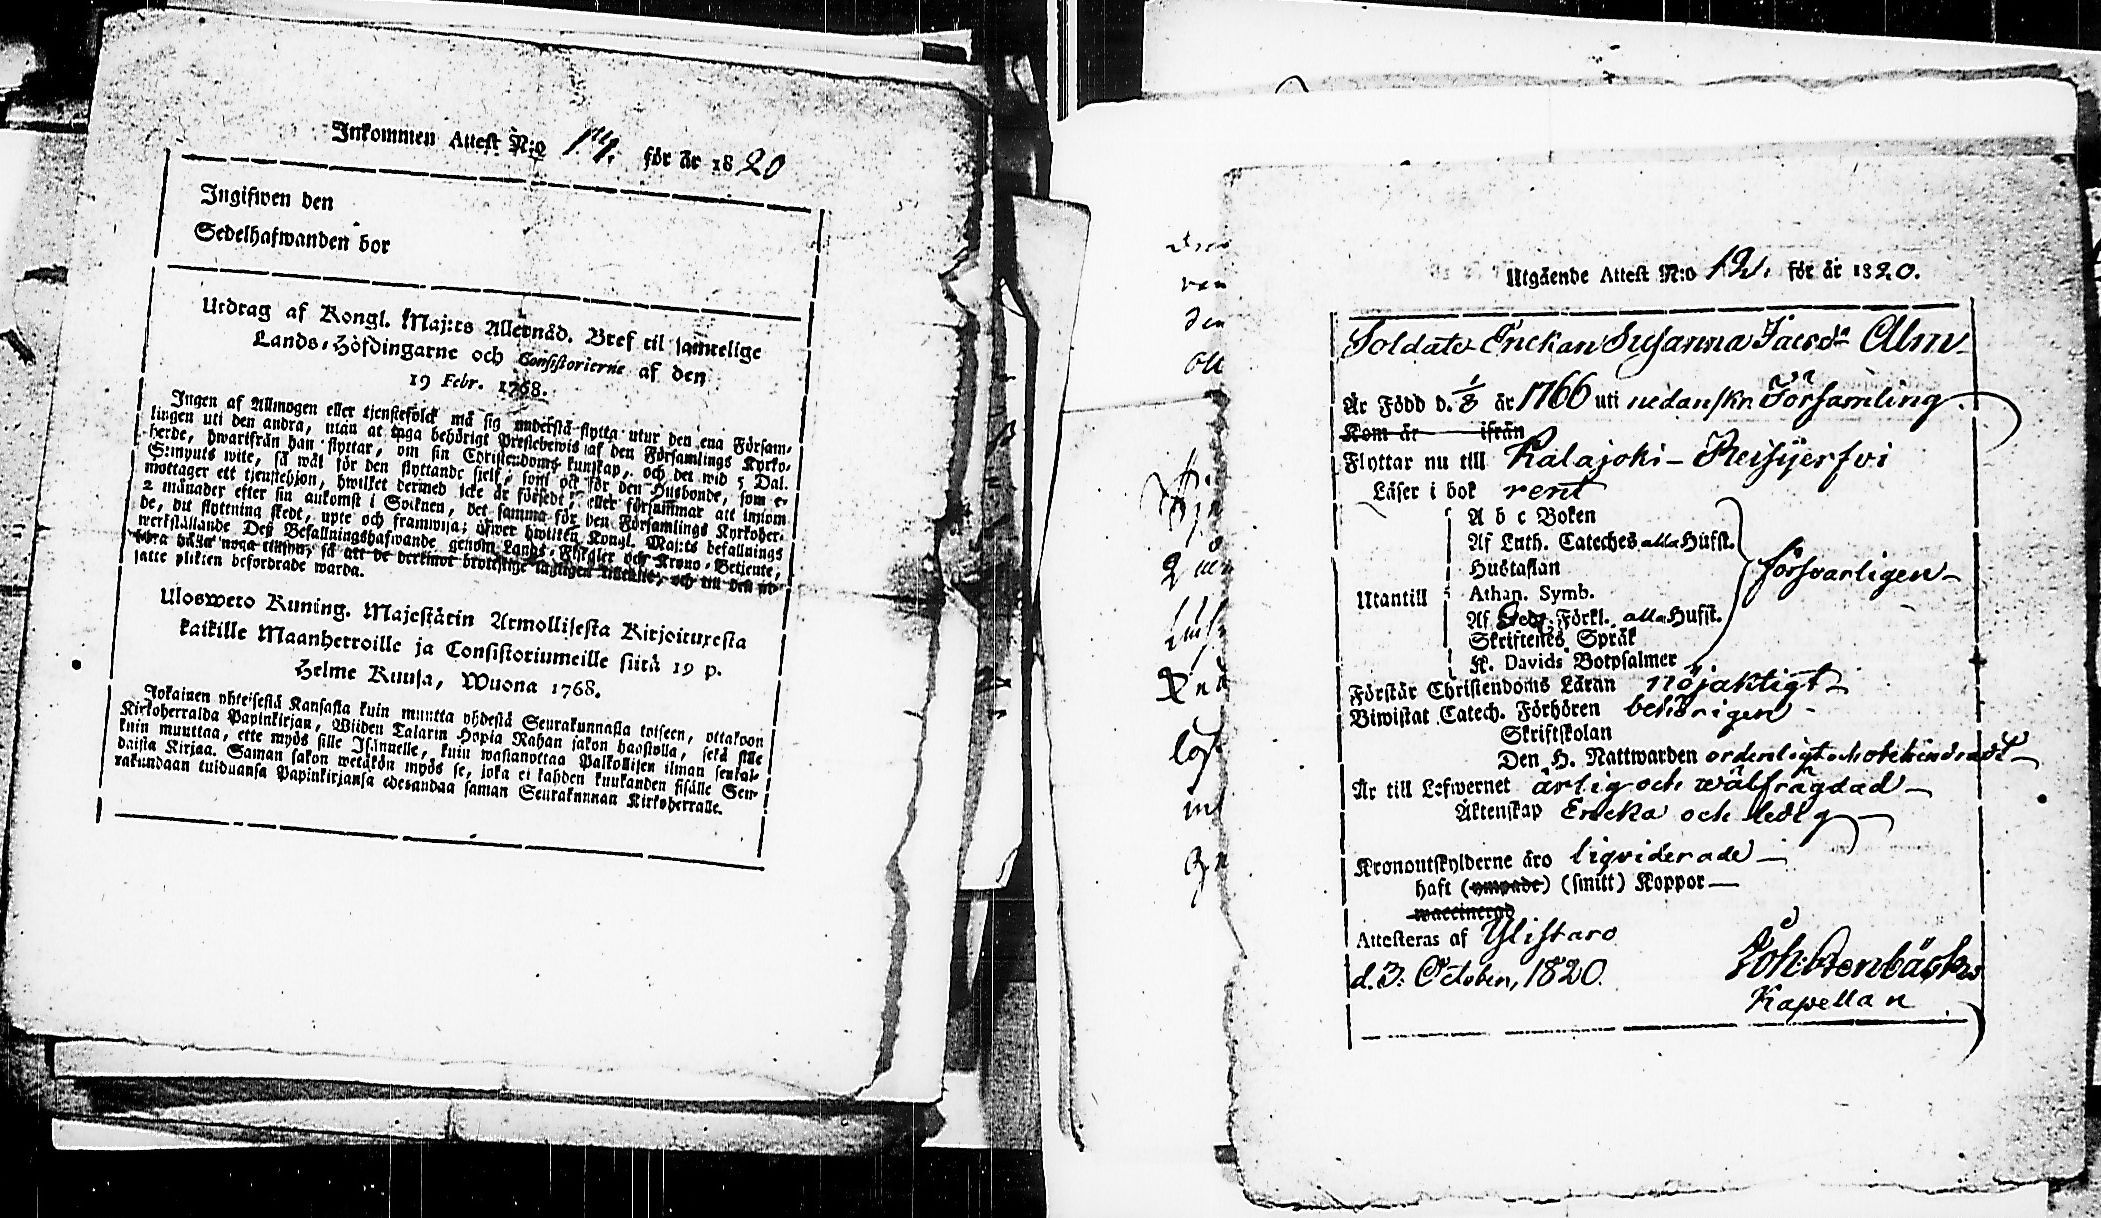 Inkommen Attest N:o 14. för år 1820
Ingifwen den
Sedelhafwanden bor
Utdrag af Kongl. Maj:ts Allernåd. Bref til samtelige
Lands-Höfdingarne och Consistorierne af den
19 Febr. 1768.
Ingen af Allmogen eller tjenstefolck må sig understå flytta utur den ena Försam-
lingen uti den andra, utan at taga behörigt Prestebewis af den Församlings Kyrko-
herde, hwarifrån han flyttar, om sin Christendoms kunskap, och det wid 5 Dal.
S:mynts wite, så wäl för den flyttande sielf, som ock för den Husbonde, som e-
mottager ett tjenstehjon, hwilket dermed icke är försedt, eller försummar att innom
2 månader efter sin ankomst i Socknen, det samma för den Församlings Kyrkoher-
de, dit flyttning skedt, upte och framwisa; öfwer hwilken Kongl. Maj:ts befallnings
werkställande Deß Befallningshafwande genom Lands-Fiskaler och Krono-Betjente,
böra hålla noga tilsyn, så att de deremot brotslige lagligen tiltalte, och til den ut-
satte plickten befordrade warda.
Ulosweto Kuning. Majestätin Armollisesta Kirjoituxesta
kaikille Maanherroille ja Consistoriumeille siitä 19 p.
Helme Kuusa, Wuona 1768.
Jokainen yhteisestä Kansasta kuin muutta yhdestä Seurakunnasta toiseen, ottakoon
Kirkoherralda Papinkirjan, Wiiden Talarin Hopia Rahan sakon haastolla, sekä sille
kuin muuttaa, ette myös sille Isännelle, kuin wastanottaa Palkollisen ilman senkal-
daista Kirjaa. Saman sakon wetäkön myös se, joka ei kahden kuukauden sisälle Seu-
rakundaan tulduansa Papinkirjansa edesandaa saman Seurakunnan Kirkoherralle.
Utgående Attest N:o 12. för år 1820.
Soldats Enckan Susanna Jacobs dr Alm
Är Född d. 1/8 år 1766 uti nedanskr. Församling
Kom år ifrån
Flyttar nu till Kalajoki - Reisjerfvi
Läser i bok rent
A b c Boken
Af Luth. Cateches alla Hufst.
Hustaflan
Utantill Athan. Symb.
försvarligen
Af Förkl. alla Hufst.
Skriftenes Språk
K. Davids Botpsalmer
Förstår Christendoms Läran nöjaktigt
Biwistat Catech. Förhören behörigen
Skriftskolan
Den H. Nattwarden ordenligt och obehindradt
Är till Lefwernet ärlig och wälfrägdad
Äktenskap Encka och ledig
Kronoutskylderne äro liqviderade
haft (ympade) (smitt) Koppor
waccinerad
Attesteras af Ylistaro
d. 3. October, 1820.
Joh: Stenbäck
Kapellan